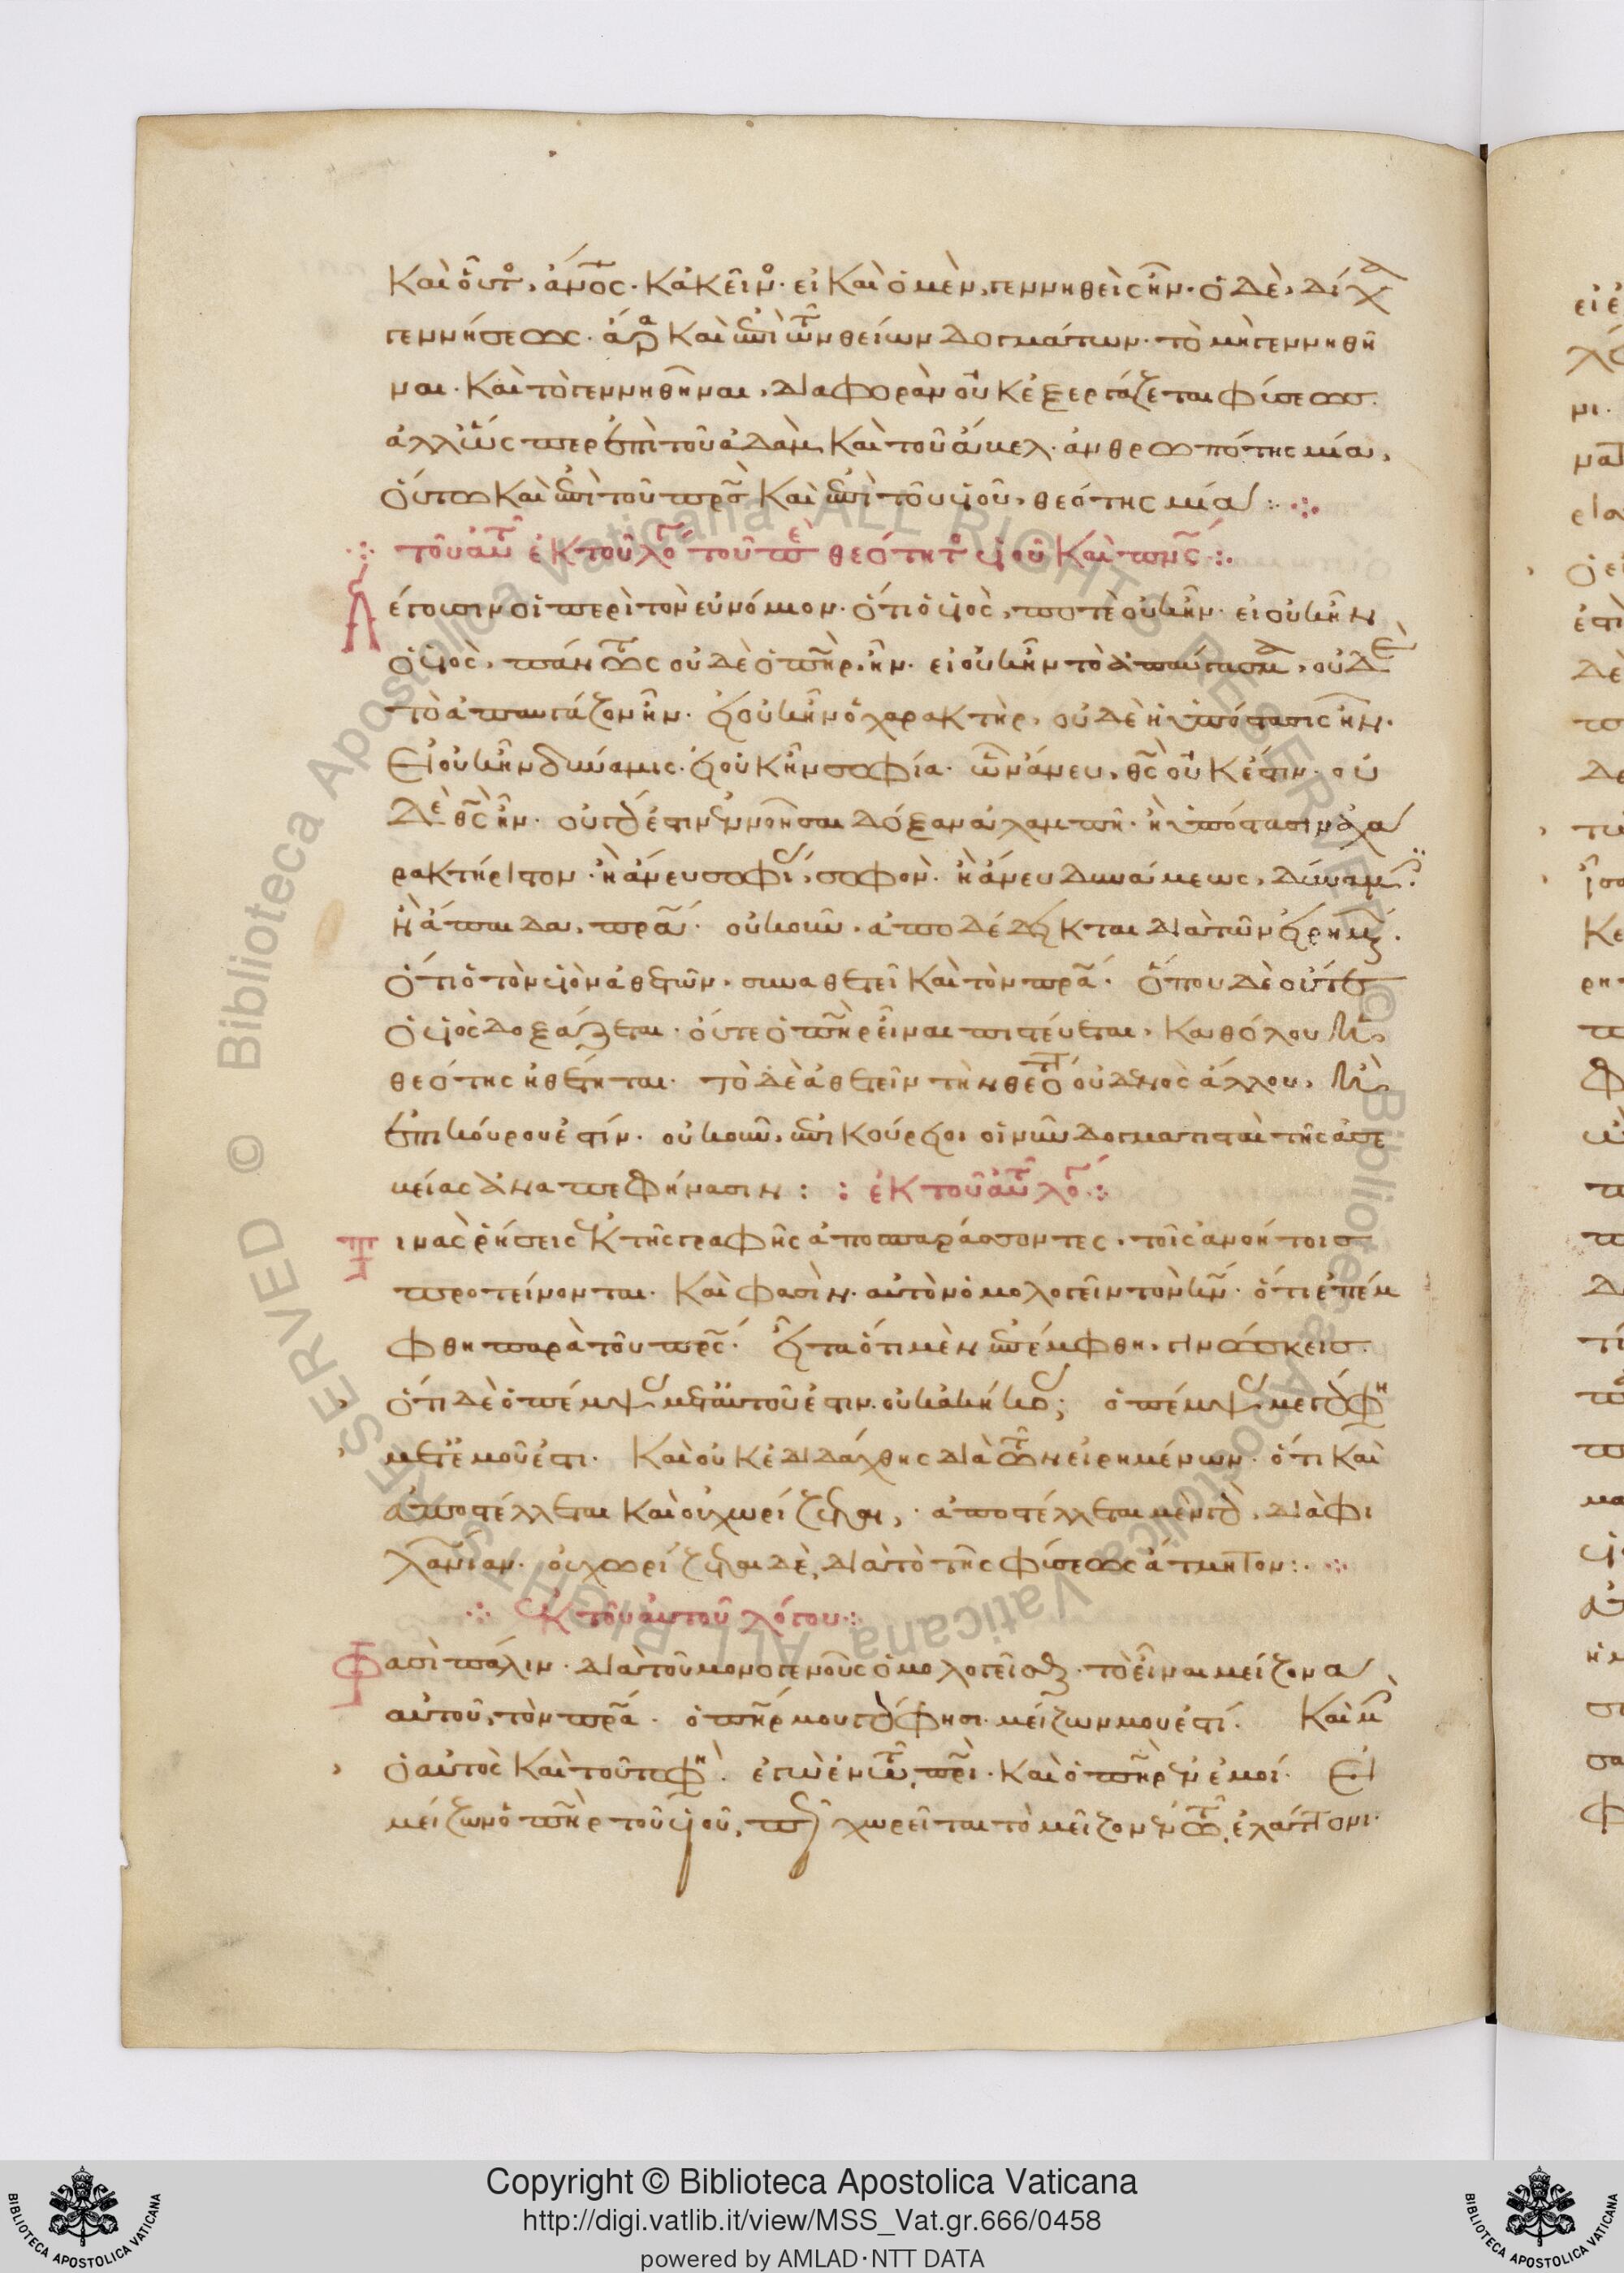 Καὶ οὗτος, ἄνος· κἀκεῖνος· εἰ καὶ ὁ μὲν, γεννηθεὶς ἦν· ὁ δὲ, δίχα
γεννήσεως· ἆρα καὶ ἐπὶ τῶν θείων δογμάτων· τὸ μὴ γεννηθῆ
ναι· καὶ τὸ γεννηθῆναι, διαφορὰν οὐκ ἐξεργάζεται φύσεως·
ἀλλ' ὥσπερ ἐπὶ τοῦ ἀδὰμ, καὶ τοῦ ἄβελ· ἀνθρωπότης μία,
οὕτω καὶ ἐπὶ τοῦ πρς καὶ ἐπὶ τοῦ υἱοῦ, θεότης μία:
τοῦ αὐτοῦ ἐκ τοῦ λόγου τοῦ περὶ θεότητος υἱοῦ καὶ πνς:
Λέγουσιν οἱ περὶ τὸν εὐνόμιον· ὅτι ὁ υἱὸς, ποτὲ οὐκ ἦν· εἰ οὐκ ἦν
ὁ υἱὸς, πάντως οὐδὲ ὁ πηρ ἦν· εἰ οὐκ ἦν τὸ ἀπαύγασμα, οὐδὲ
τὸ ἀπαυγάζον ἦν· εἰ οὐκ ἦν ὁ χαρακτὴρ, οὐδὲ ἡ ὑπόστασις ἦν·
Εἰ οὐκ ἦν δύναμις· εἰ οὐκ ἦν σοφία· ὧν ἄνευ, θς οὐκ ἔστιν· οὐ
δὲ θς ἦν· οὐ γὰρ ἔστιν ἐννοῆσαι δόξαν ἀλαμπῆ· ἢ ὑπόστασιν ἀχα
ρακτήριστον· ἢ ἄνευ σοφίας, σοφὸν· ἢ ἄνευ δυνάμεως, δύναμιν·
ἢ ἄπαιδα, πρα· οὐκοῦν ἀποδέδεικται διὰ τῶν εἰρημένων·
ὅτι ὁ τὸν υἱὸν ἀθετῶν, συναθετεῖ καὶ τὸν πρα· ὅπου δὲ οὔτε
ὁ υἱὸς δοξάζεται· οὔτε ὁ πηρ εἶναι πιστεύεται, καθόλου ἡ
θεότης ἠθέτηται· τὸ δὲ ἀθετεῖν τὴν θεότητα οὐδενὸς ἄλλου, ἢ
ἐπικούρου ἐστίν· οὐκοῦν, ἐπικούρειοι οἱ νῦν δογματισταὶ τῆς ἀσε
βείας ἀναπεφήνασιν: : ἐκ τοῦ αὐτοῦ λόγου:
Τινὰς ῥήσεις ἐκ τῆς γραφῆς ἀποσπαράσσοντες, τοῖς ἀνοήτοις
προτείνονται· καὶ φασὶν· αὐτὸν ὁμολογεῖν τὸν κν· ὅτι ἐπέμ
φθη παρὰ τοῦ πρς· εἶτα ὅτι μὲν ἐπέμφθη, γινώσκεις·
ὅτι δὲ ὁ πέμψας μετ' αὐτοῦ ἐστιν· οὐκ ἀκήκοας; ὁ πέμψας με γὰρ φη
μετ' ἐμοῦ ἐστι· Καὶ οὐκ ἐδιδάχθης διὰ τῶν εἰρημένων· ὅτι καὶ
ἀποστέλλεται καὶ οὐ χωρίζεται, ἀποστέλλεται μὲν γὰρ, διὰ φι
λανίαν· οὐ χωρίζεται δὲ, διὰ τὸ τῆς φύσεως ἄτμητον:
Ἐκ τοῦ αὐτοῦ λόγου:
Φασὶ πάλιν· διὰ τοῦ μονογενοῦς ὁμολογεῖσθαι· τὸ εἶναι μείζονα
αὐτοῦ, τὸν πρα· ὁ πηρ μου γάρ φησι· μείζων μου ἐστί· Καὶ μὴν
ὁ αὐτὸς καὶ τοῦτο φη· ἐγὼ ἐν τῶ πρι· καὶ ὁ πηρ ἐν ἐμοί· Εἰ
μείζων ὁ πηρ τοῦ υἱοῦ, πῶς χωρεῖται τὸ μεῖζον ἐν τῶ ἐλάττονι·
Copyright © Biblioteca Apostolica Vaticana
http://digi.vatlib.it/view/MSS_Vat.gr.666/0458
powered by AMLAD·NTT DATA
BIBLIOTECA APOSTOLICA VATICANA
BIBLIOTECA APOSTOLICA VATICANA